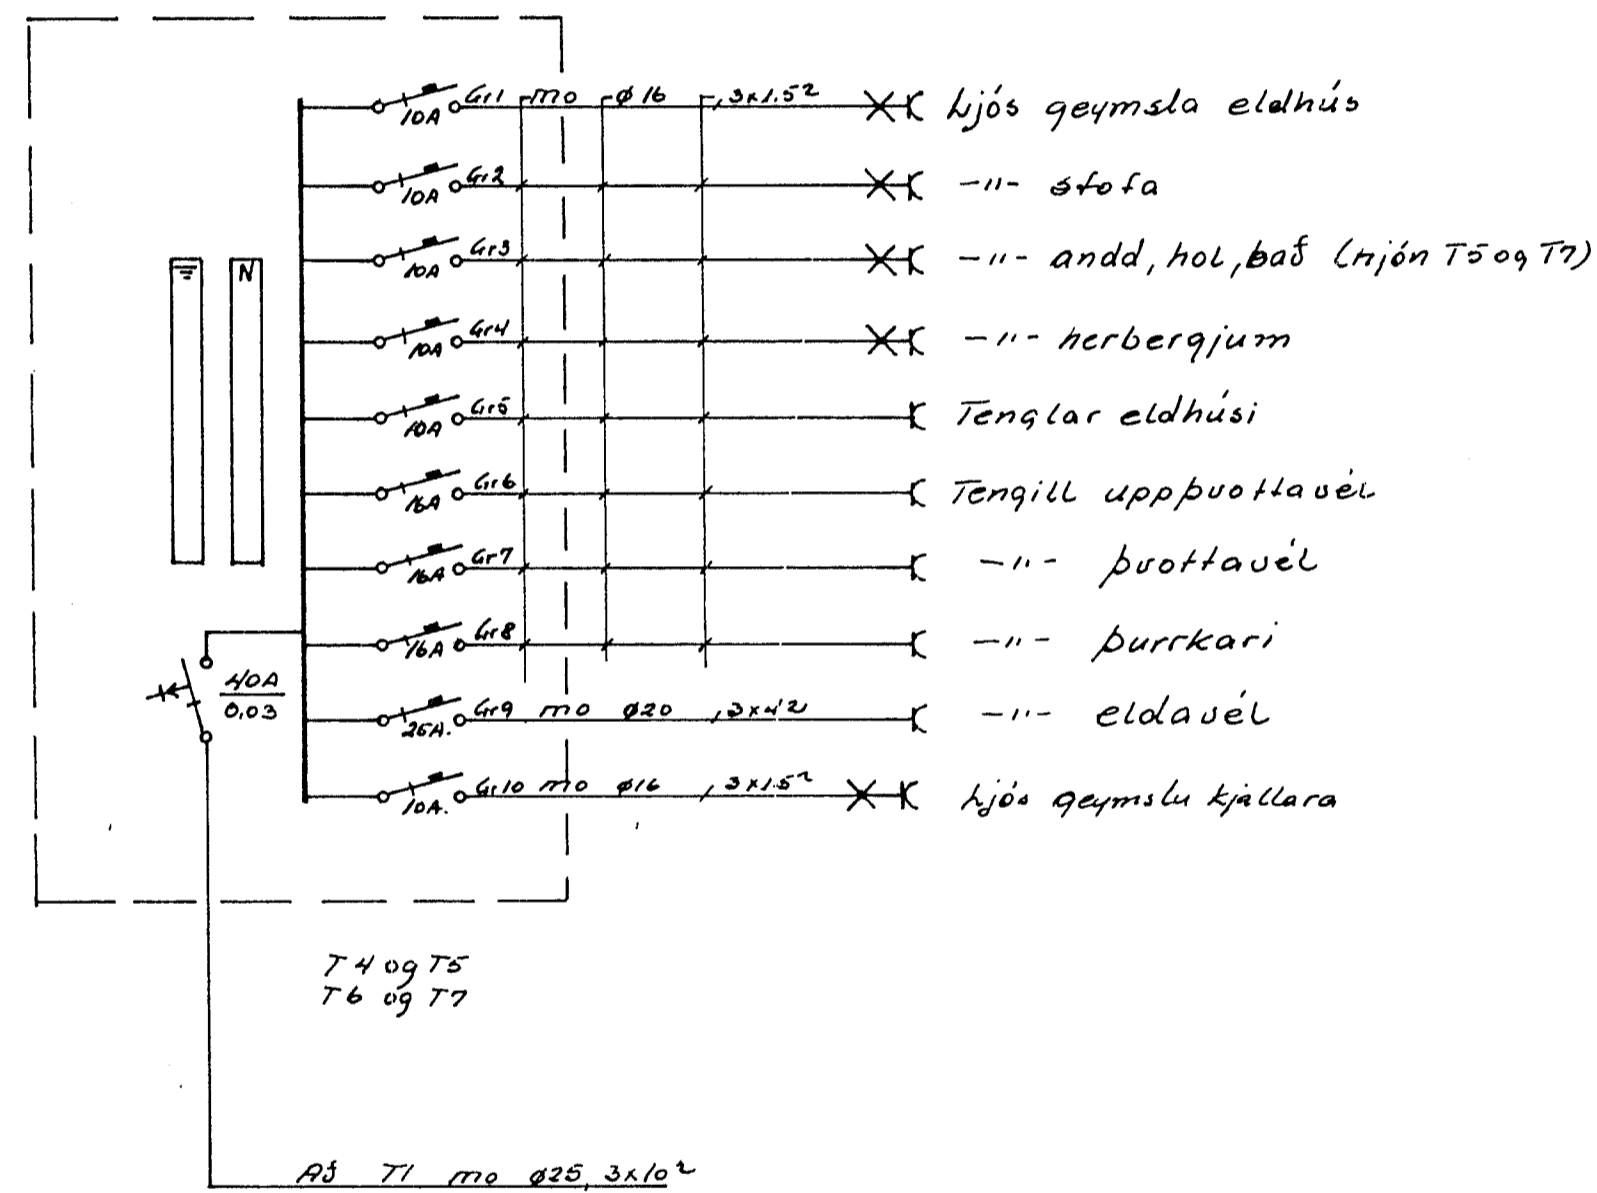 Gr1 mo ø16 , 3x1.5² Ljós geymsla eldhús
10A
Gr2 -"- stofa
10A
Gr3 -"- andd, hol, bað ( T5 og T7)
10A
N
Gr4 -"- herbergjum
10A
Gr5 Tenglar eldhúsi
10A
Gr6 Tengill uppþvottavél
16A
Gr7 -"- þvottavél
16A
Gr8 -"- þurrkari
16A
40A
0,03
Gr9 mo ø20 , 3x4² -"- eldavél
25A.
Gr10 mo ø16 , 3x1.5² Ljós geymslu kjallara
10A.
T4 og T5
T6 og T7
Af T1 mo ø25, 3x10²